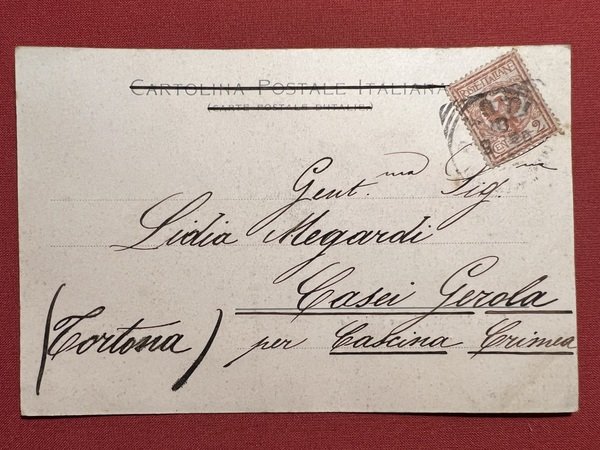 CARTOLINA POSTALE ITALIANA
(CARTE POSTALE D'ITALIE)
POSTE ITALIANE
CENT. 2
Gent.ma Sig.na
Lidia Megardi
Casei Gerola
(Tortona) per Cascina Crimea